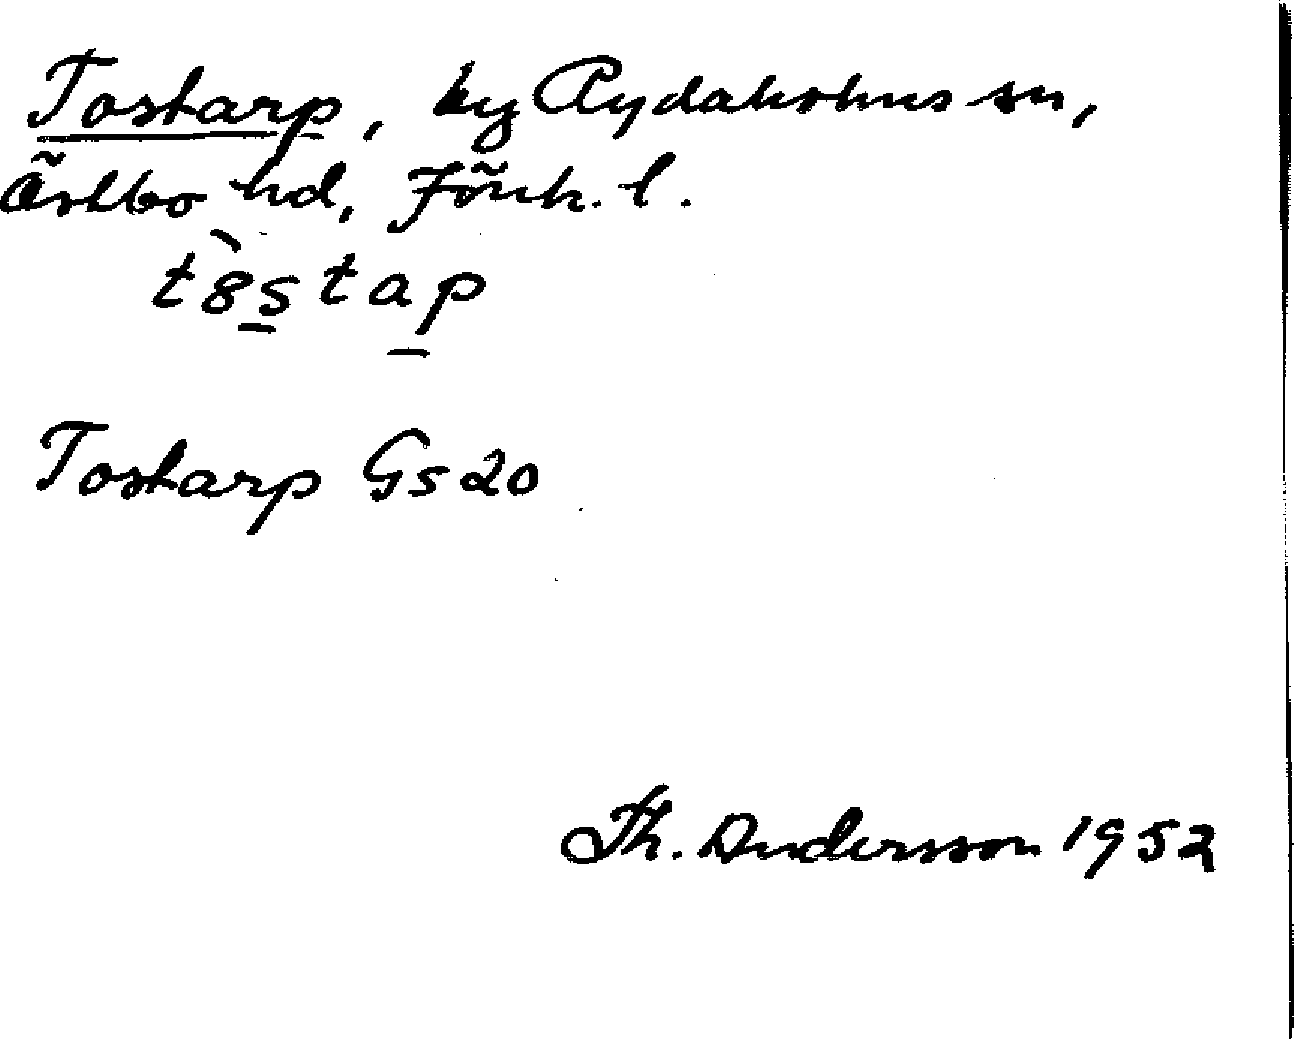 Tostarp, by Rydaholms sn,
Östbo hd, Jönk. l.
t8̀s̲tap̲
Tostarp Gs20
Th. Andersson 1952